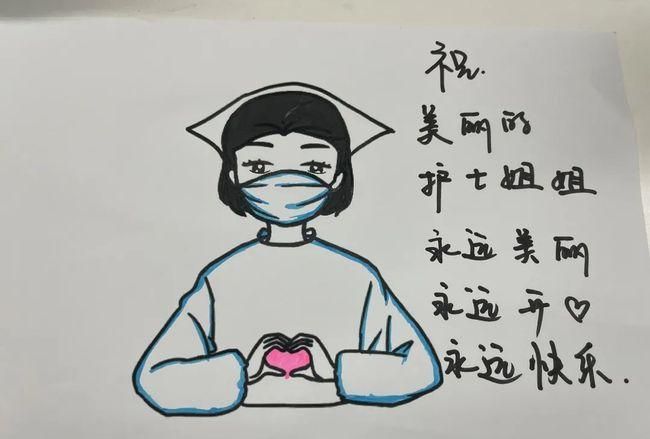 祝.
美丽的
护士姐姐
永远美丽
永远开♡
永远快乐.